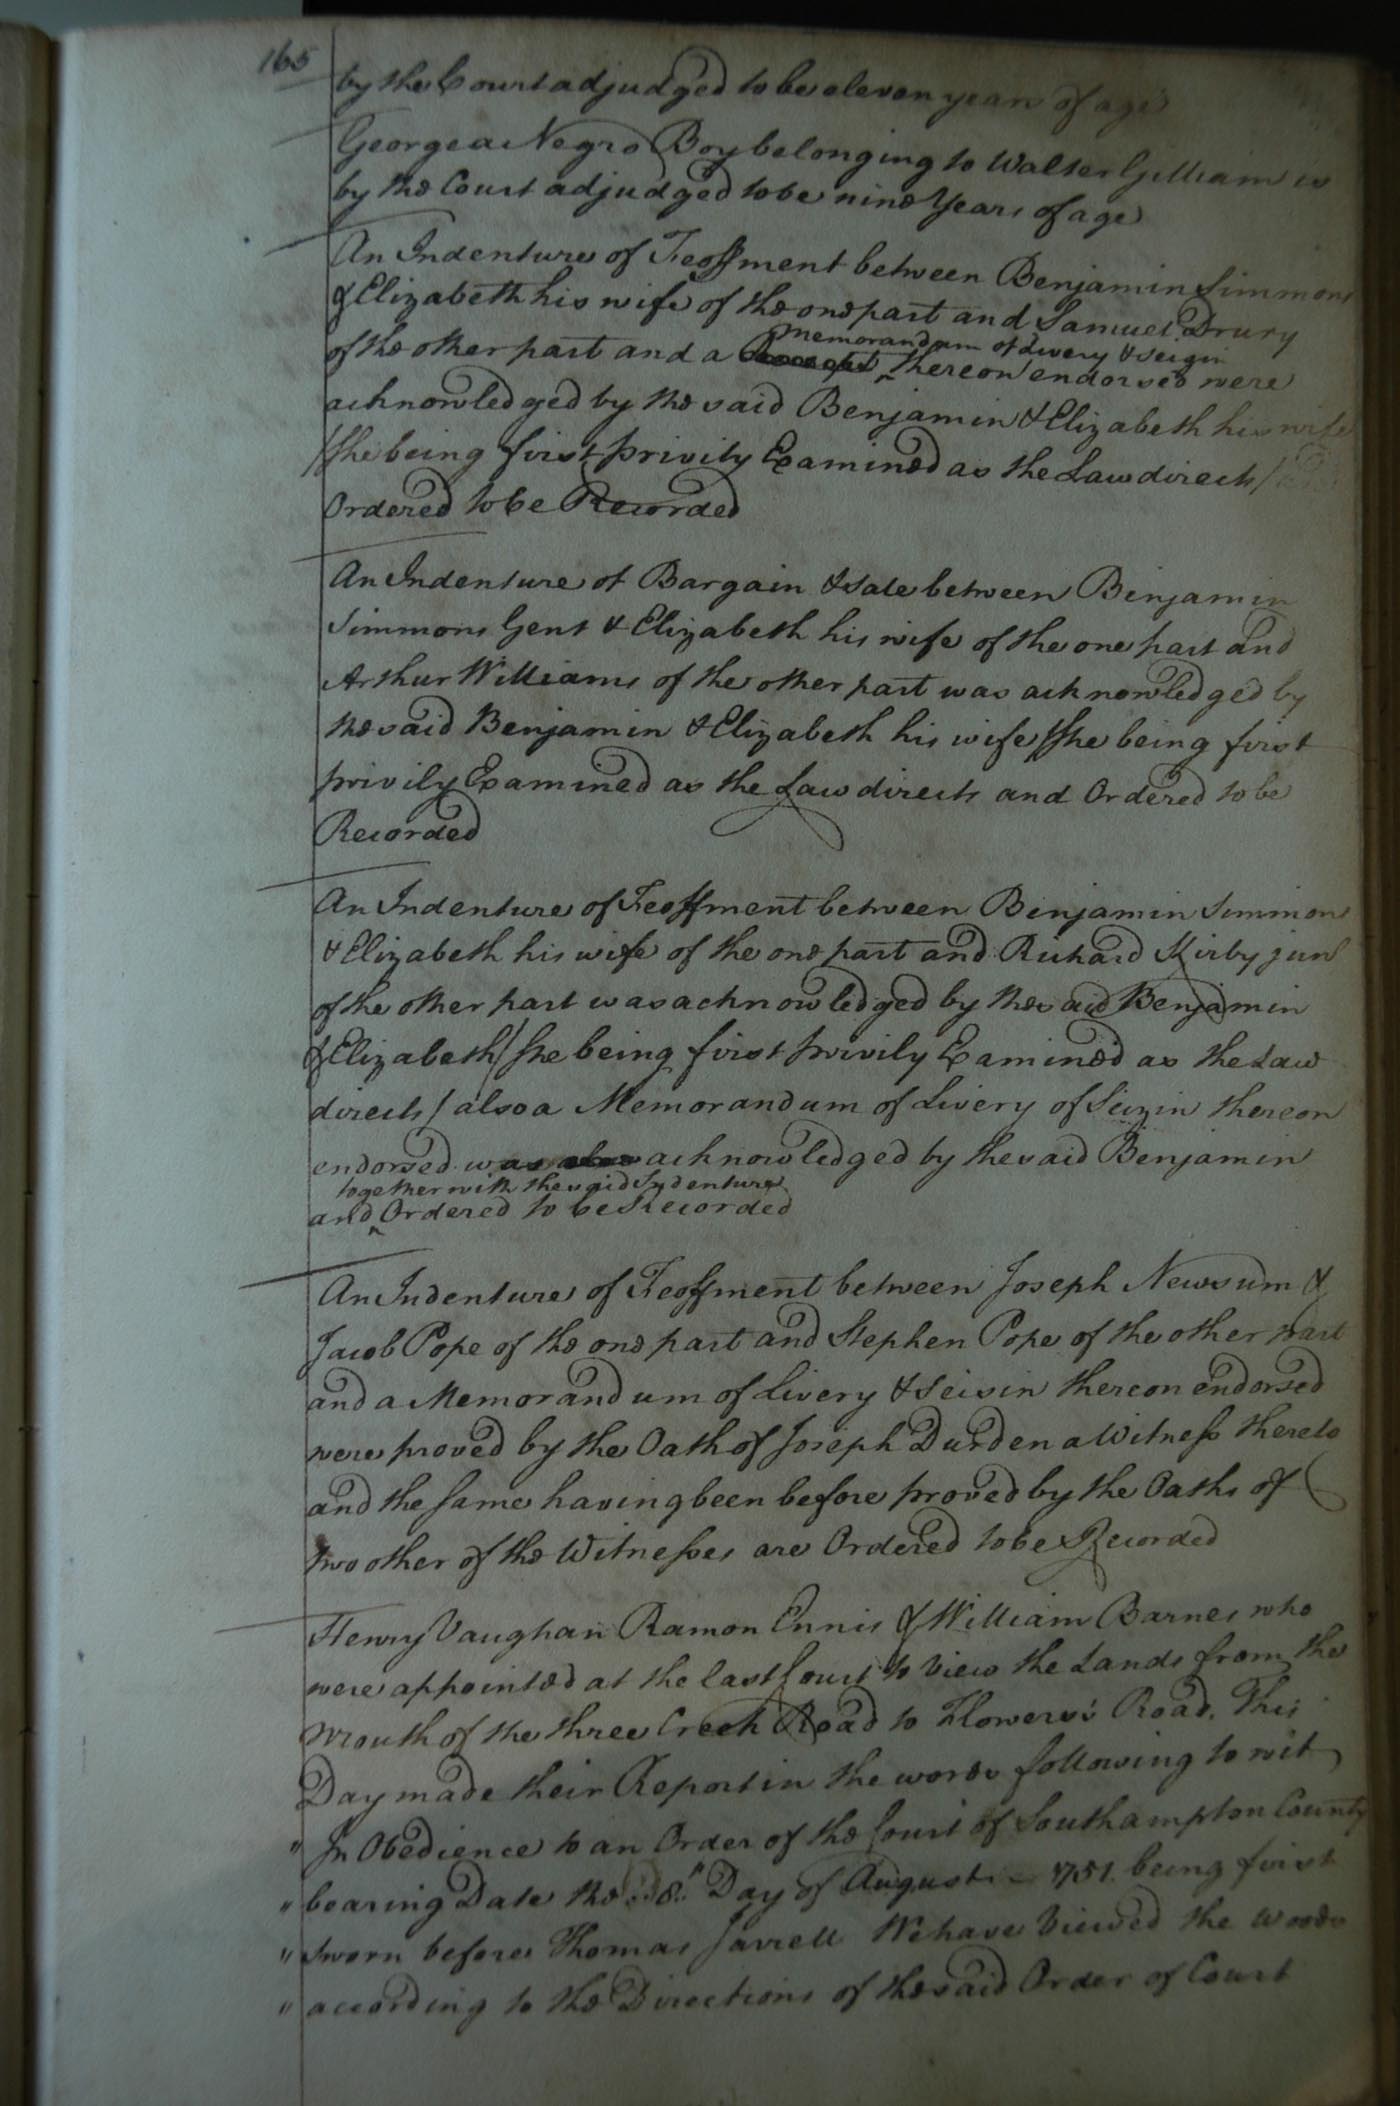 165
by the Court adjudged to be eleven years of age
George a Negro Boy belonging to Walter Gilliam is
by the Court adjudged to be nine Years of age
An Indenture of Feoffment between Benjamin Simmons
& Elizabeth his wife of the one part and Samuel Drury
memorandum of Livery & seizin
of the other part and a thereon endorsed were
acknowledged by the said Benjamin & Elizabeth his wife
/She being first privily Examined as the Law directs/ and
Ordered to be Recorded
An Indenture of Bargain & sale between Benjamin
Simmons Gent & Elizabeth his wife of the one part and
Arthur Williams of the other part was acknowledged by
the said Benjamin & Elizabeth his wife /She being first
privily Examined as the Law directs and Ordered to be
Recorded
An Indenture of Feoffment between Benjamin Simmons
& Elizabeth his wife of the one part and Richard Kirby junr
of the other part was acknowledged by the said Benjamin
& Elizabeth /She being first privily Examined as the Law
directs/ also a Memorandum of Livery of Seizin thereon
endorsed was also acknowledged by the said Benjamin
together with the said Indenture
and ^ Ordered to be Recorded
An Indenture of Feoffment between Joseph Newsum &
Jacob Pope of the one part and Stephen Pope of the other part
and a Memorandum of Livery & seisin thereon endorsed
were proved by the Oath of Joseph Durden a Witness thereto
and the same having been before proved by the Oaths of
two other of the Witnesses are Ordered to be Recorded
Henry Vaughan Ramon Ennis & William Barnes who
were appointed at the last Court to View the Lands from the
Mouth of the three Creek Road to Flowers's Road. This
Day made their Report in the words following to wit
" In Obedience to an Order of the Court of Southampton County
" bearing Date the 8th Day of August 1751. being first
" sworn before Thomas Jarrell We have Viewed the woods
" according to the Directions of the said Order of Court